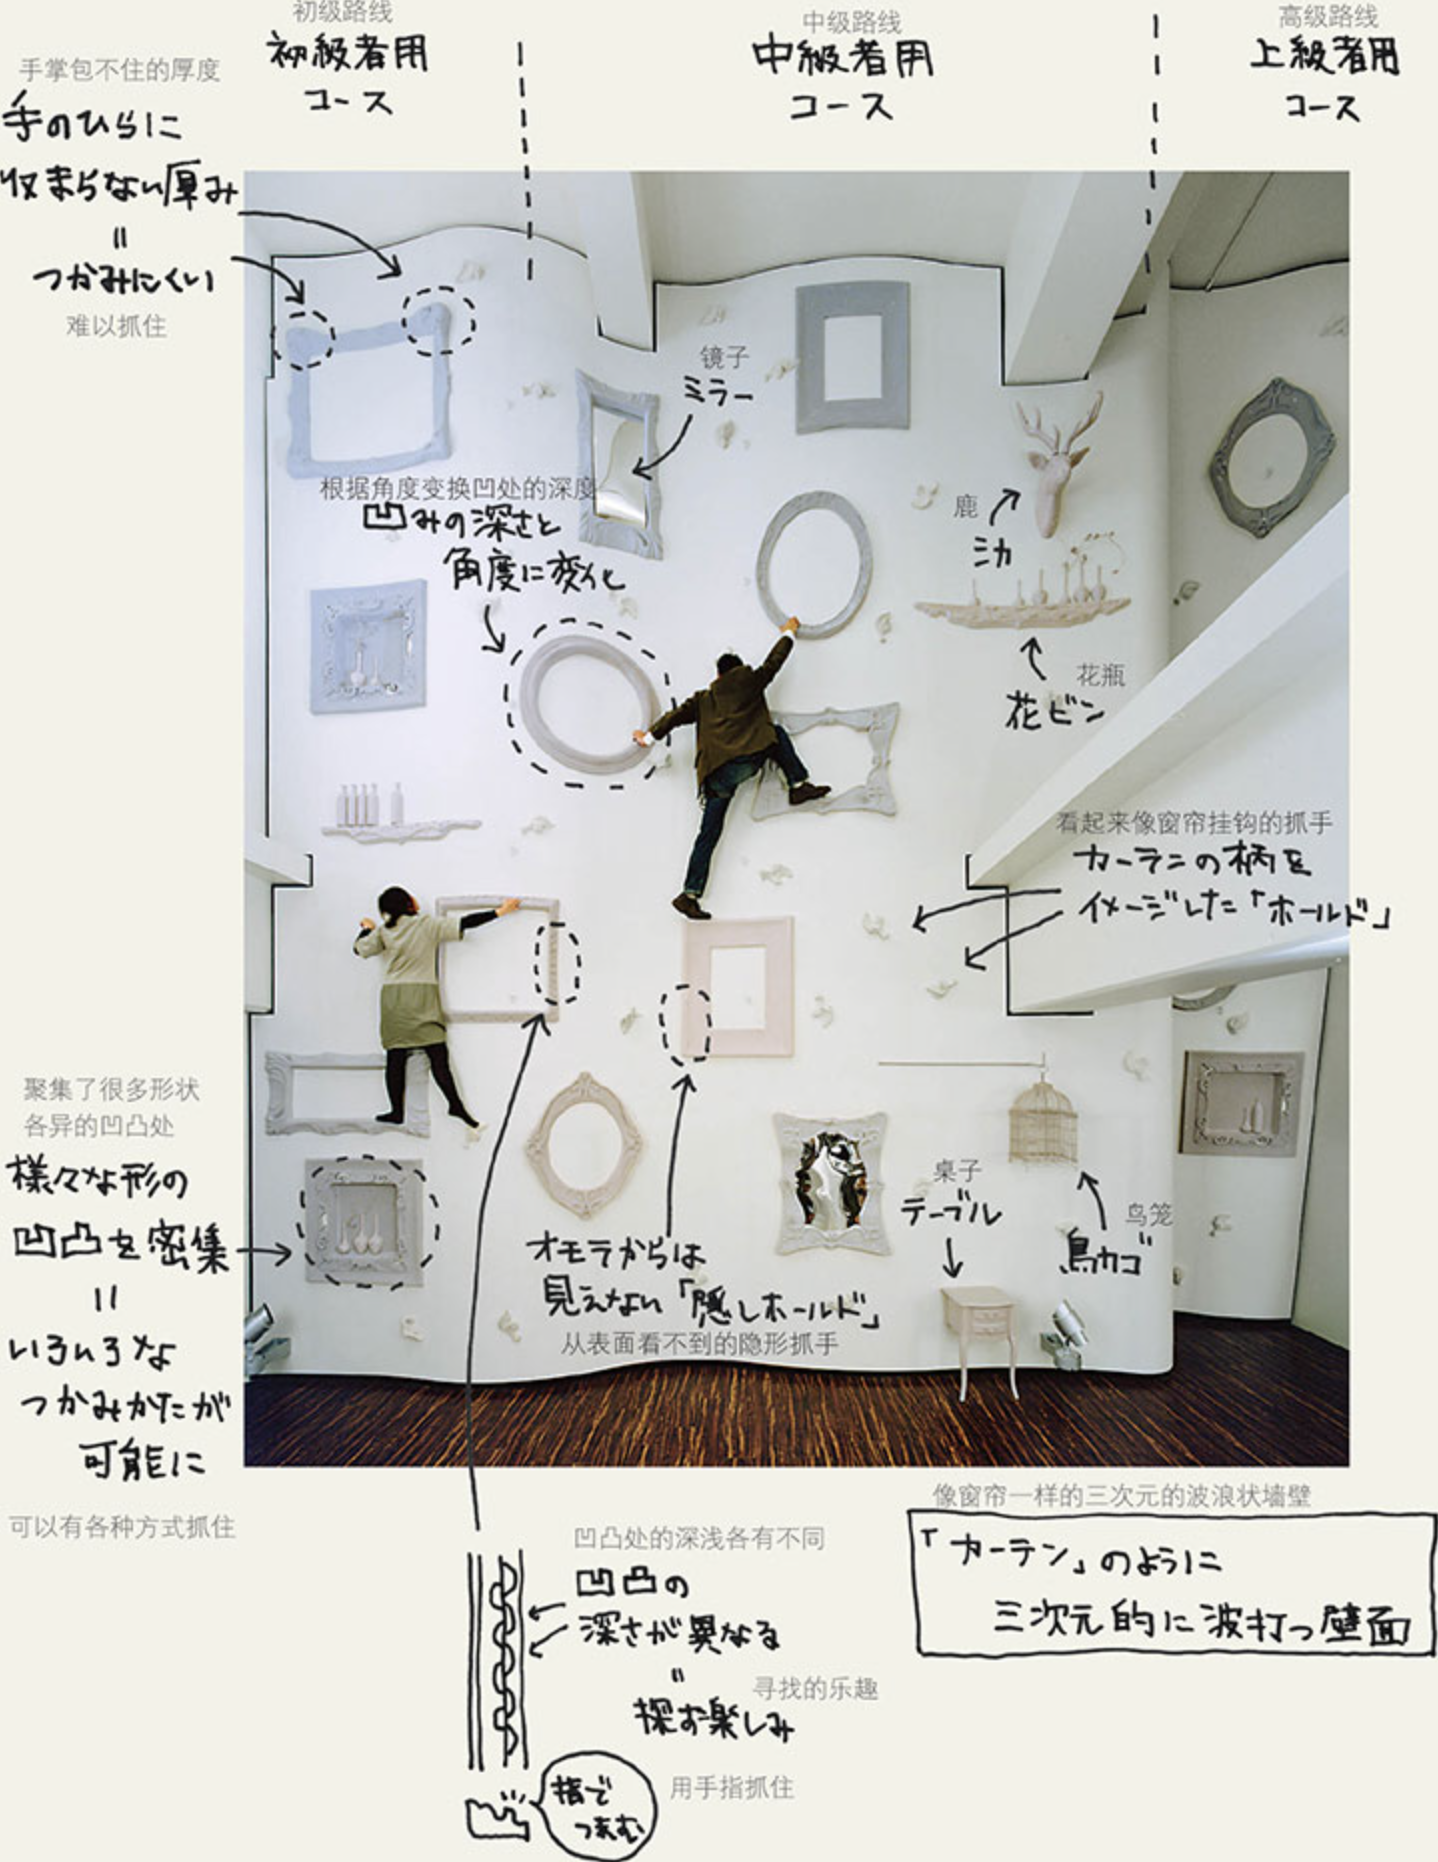 初级路线
初級者用
コース
中级路线
中級者用
コース
高级路线
上級者用
コース
手掌包不住的厚度
手のひらに
収まらない厚み
=
つかみにくい
难以抓住
镜子
ミラー
根据角度变换凹处的深度
凹みの深さと
角度に変化
鹿
シカ
花瓶
花ビン
看起来像窗帘挂钩的抓手
カーテンの柄を
イメージした「ホールド」
聚集了很多形状
各异的凹凸处
様々な形の
凹凸を密集
=
いろいろな
つかみかたが
可能に
可以有各种方式抓住
オモテからは
見えない「隠しホールド」
从表面看不到的隐形抓手
桌子
テーブル
鸟笼
鳥カゴ
像窗帘一样的三次元的波浪状墙壁
「カーテン」のように
三次元的に波打つ壁面
凹凸处的深浅各有不同
凹凸の
深さが異なる
=
寻找的乐趣
探す楽しみ
用手指抓住
指で
つまむ